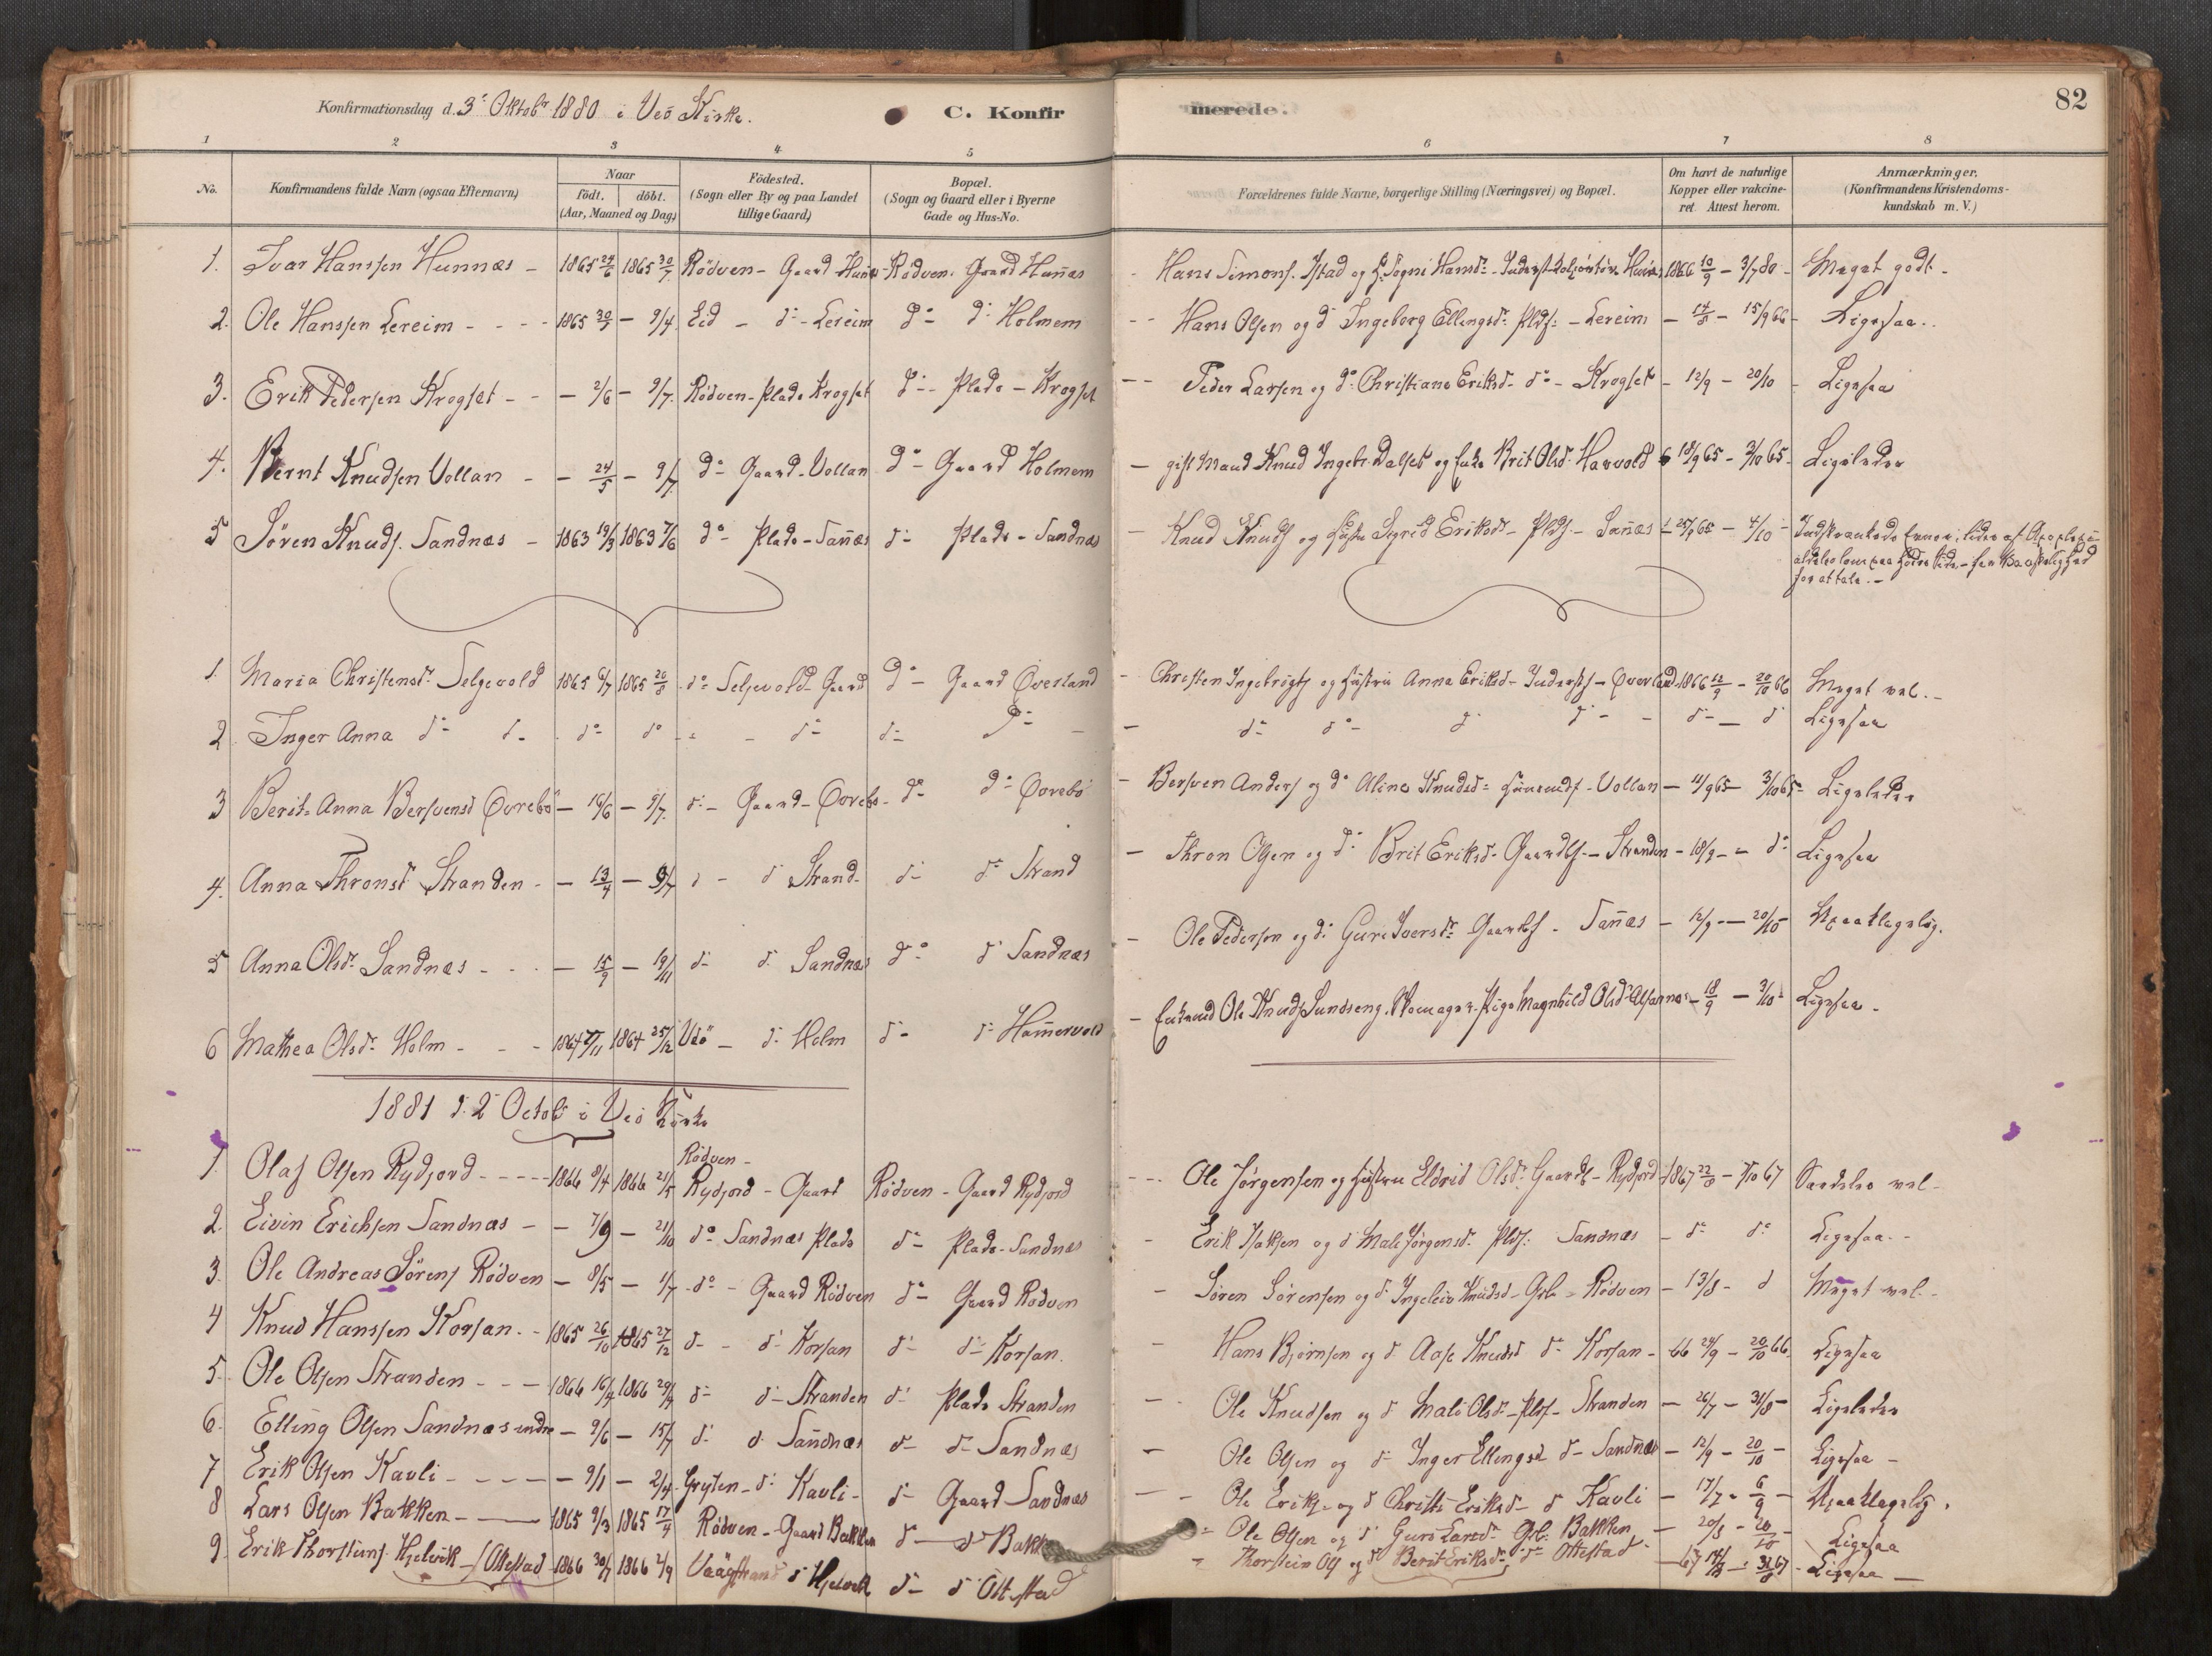 Konfirmationsdag d. 3. Oktob 1880 i Veö Kirke. C. Konfirmerede. 82
1 2 3 4 5 6 7 8
No. Konfirmandens fulde Navn (ogsaa Efternavn) Naar födt. döbt. (Aar, Maaned og Dag) Födested. (Sogn eller By og paa Landet tillige Gaard) Bopæl. (Sogn og Gaard eller i Byerne Gade og Hus-No. Forældrenes fulde Navne, borgerlige Stilling (Næringsvei) og Bopæl. Om havt de naturlige Kopper eller vakcineret. Attest herom. Anmærkninger. (Konfirmandens Kristendomskundskab m. V.)
1. Ivar Hanssen Hunnæs - 1865 24/6 1865 30/7 Rödven - Gaard Hunæs Rödven Gaard Hunæs - Hans Simons. Istad og Signi Hansd. 1866 10/9 - 3/7 80 - Meget godt -
2. Ole Hanssen Lereim - 1865 30/1 - 9/4 Eid - d - Lereim d - d Holmem - Hans Olsen og d Ingeborg Ellingsd. Plds. - Lereim - 14/8 - 15/9 66 - Ligesaa.
3. Erik Pedersen Krogset - - 2/6 - 9/7 Rödven - Plads Krogset d - Plads - Krogset - Peder Larsen og d Christiane Eriksd - d - Krogset - 12/9 - 20/10 - Ligesaa
4. Bernt Knudsen Vollan - - 24/5 - 9/7 d - Gaard - Vollan d - Gaard Holmem - gift Mand Knud Ingebr. Dalset og Enke Brit Olsd. Harvold 18/9 65 - 3/10 65 - Ligeledes
5 Sören Knuds. Sandnæs - 1863 19/3 1863 7/6 d - Plads - Sañæs d - Plads - Sandnæs - Knud Knuds og Hustru Sigrid Eriksd - Plds - Sañæs 25/9 65 - 4/10 - Indskrænkede Evner; lider af
for at tale. -
1. Maria Christensd. Selgevold 1865 6/7 1865 20/8 d - Seljevold - Gaard d - Gaard Överland - Christen Ingebrigts og Hustru Anna Eriksd - Inderst - Överland 1866 12/9 - 20/10 66 Meget vel. -
2. Inger Anna d - d - d d - d - d - d - - d - d - d d - - d - d Ligesaa
3 Berit - Anna Bersvensd Övrebö - 16/6 - 9/7 d - Gaard - Övrebö d - d - Övrebö - Bersven Anders og d Aline Knudsd - Vollan - 4/9 65 - 3/10 65 - Ligeledes
4. Anna Thronsd. Stranden - - 13/4 - 9/7 d - d Strand - d - d Strand - Thron Olsen og d Brit Eriksd. Gaardbs. - Stranden - 18/9 - d Ligesaa
5 Anna Olsd. Sandnæs - - - 15/9 - 19/11 d - d Sandnæs d d Sandnæs - Ole Pedersen og d Guri Iversd. Gaardbs - Sañæs - 12/9 - 20/10 Upaaklagelig.
6 Mathea Olsd. Holm - - - 1864 27/11 1864 25/12 Veö - d. Holm d - d Hamervold - Enkemand Ole Knuds Sundseng. Skomager. Pige Magnhild Olsd. - 18/9 - 3/10 - Ligesaa -
1881 d. 2 Octob i Veö Kirke
1. Olaf Olsen Rydjord - - - - 1866 8/4 1866 21/5 Rödven - Rydjord - Gaard Rödven - Gaard Rydjord - - Ole Jörgensen og Hustru Eldrid Olsd. Gaardb - Rydjord 1867 22/8 - 7/10 67 Særdeles vel -
2. Eivin Erichsen Sandnæs - - 7/9 - 21/10 d Sandnæs Plads d - Plads - Sandnæs - Erik Isaksen og d Mali Jörgensd. Plds. Sandnæs - d d Ligesaa. -
3. Ole Andreas Sörens Rödven - 8/5 - 1/7 - d - Gaard Rödven d - Gaard Rödven - Sören Sörensen og d Ingeleiv Knudsd - Gb - Rödven - 13/8 - d Meget vel. -
4 Knud Hanssen Korsan. - 1865 26/10 1865 27/12 d - - d Korsan d - d - Korsan. - Hans Björnsen og d. Aase Knudsd d - Korsan - 66 24/9 - 20/10 66 Ligesaa
5. Ole Olsen Stranden - - - 1866 16/4 1866 29/4 d - d - Stranden d - Plads Stranden - Ole Knudsen og d Mali Olsd. - Plds - Stranden - 26/7 - 31/8 - Ligeledes
6. Elling Olsen Sandnæs indre - 2/6 - 15/7 d - d. Sañdnæs d - d - Sandnæs - Ole Olsen og d - Inger Ellingsd d - Sandnæs - 12/9 - 20/10 - Ligesaa -
7 Erik Olsen Kavli - - - - - 9/1 - 2/4 - Gryten - d - Kavli - d - Gaard Sandnæs - - Ole Eriks - og d Christi Eriksd - d Kavli - 17/7 - 6/9 - Upaaklagelig.
8 Lars Olsen Bakken - - 1865 9/3 1865 17/4 Rödven - Gaard Bakken d - d - Bakk - Ole Olsen og d Guri Larsd. Gb. Bakken - 20/8 - 20/10 - Ligesaa
9. Erik Thorsteins. Hjelvik - Ottestad 1866 30/7 1866 2/9 Vaagstrand d Hjelvik d - d Ottestad - Thorstein Ols og d Berit Eriksd. d - Ottestad - 67 - 31/8 67 - Ligesaa -